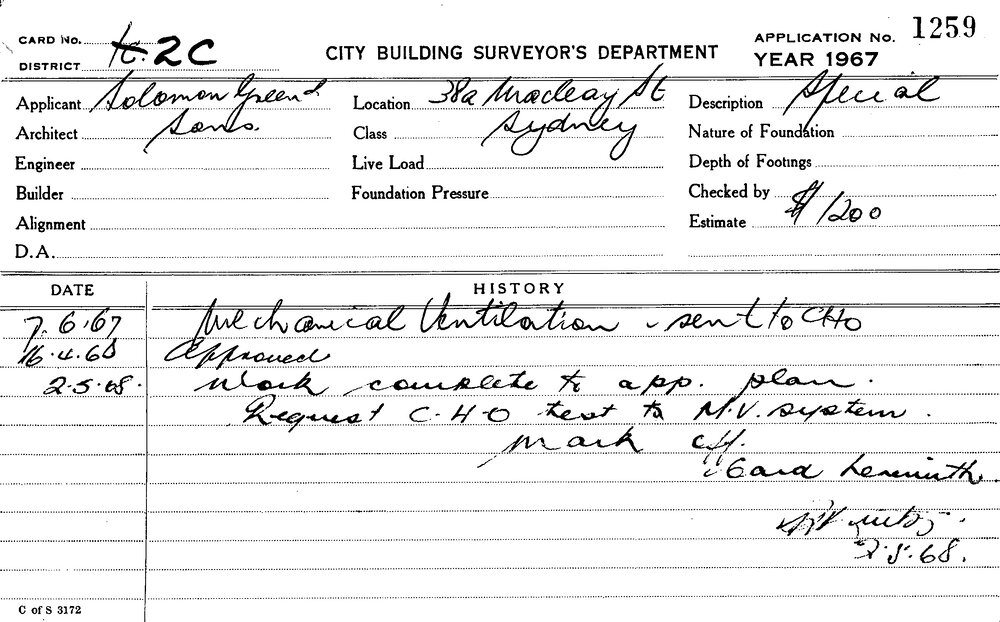 CARD NO.
DISTRICT K.2C
CITY BUILDING SURVEYOR'S DEPARTMENT
APPLICATION NO. 1259
YEAR 1967
Applicant Solomon Green &
Sons.
Location 38a Macleay St
Sydney
Description Special
Architect
Class
Nature of Foundation
Engineer
Live Load
Depth of Footings
Builder
Foundation Pressure
Checked by
Alignment
Estimate $1200
D.A.
DATE HISTORY
7.6.67 Mechanical Ventilation - sent to CHO
16.4.68 Approved
2.5.68. Work complete to app. plan.
Request C-H-O test to M.V. system.
Mark off.
Card herewith.
2.5.68.
C of S 3172